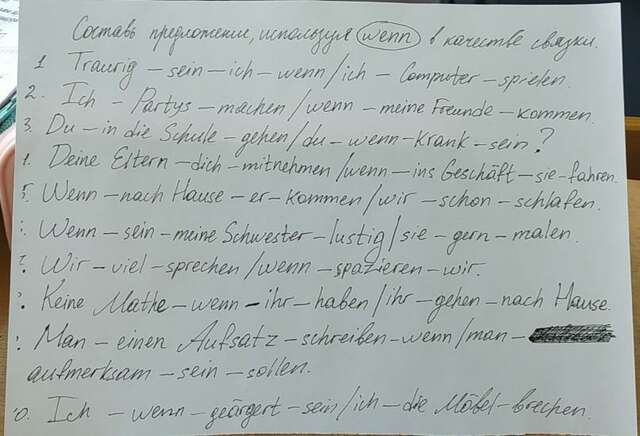 Составь предложение, используя wenn в качестве связки.
1. Traurig – sein – ich – wenn/ich – Computer – spielen.
2. Ich – Partys – machen/wenn – meine Freunde – kommen.
3. Du – in die Schule – gehen/du – wenn – krank – sein?
Deine Eltern – dich – mitnehmen/wenn – ins Geschäft – sie – fahren.
5. Wenn – nach Hause – er – kommen/wir – schon – schlafen.
Wenn – sein – meine Schwester – lustig/sie – gern – malen.
Wir – viel – sprechen/wenn – spazieren – wir.
Keine Mathe – wenn – ihr – haben/ihr – gehen – nach Hause.
Man – einen Aufsatz – schreiben – wenn/man –
aufmerksam – sein – sollen.
0. Ich – wenn – geärgert – sein/ich – die Möbel – brechen.